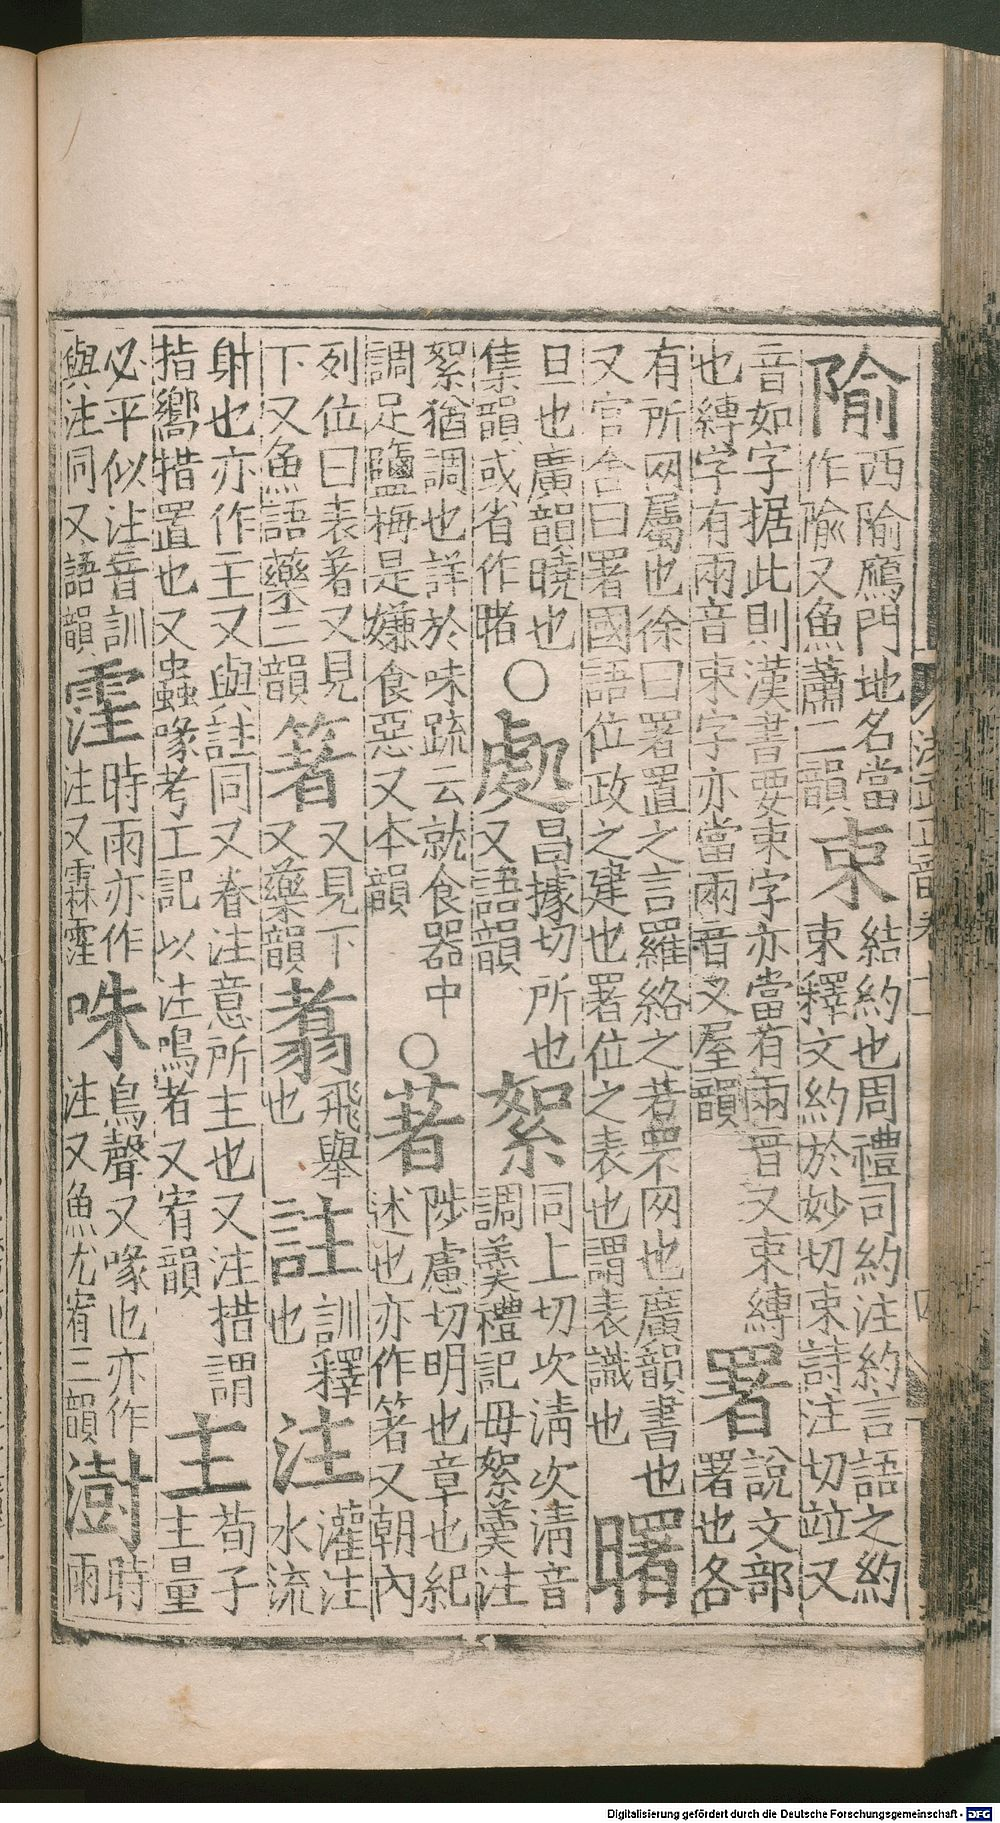 隃西隃鴈門地名當
作隃又魚蕭二韻束結約也周禮司約注約言語之約
束釋文約於妙切束詩注切竝又
音如字据此則漢書要束字亦當有兩音又束縛
也縛字有兩音束字亦當兩音又屋韻署說文部
署也各
有所网屬也徐曰署置之言羅絡之若罘网也廣韻書也
又官舍曰署國語位政之建也署位之表也謂表識也曙
旦也廣韻曉也
集韻或省作睹〇處昌據切所也
又語韻絮同上切次淸次淸音
調羹禮記毋絮羹注
絮猶調也詳於味疏云就食器中
調足鹽梅是嫌食惡又本韻〇著陟慮切明也章也紀
述也亦作箸又朝內
列位曰表著又見
下又魚語藥三韻箸又見下
又藥韻翥飛舉
也註訓釋
也注灌注
水流
射也亦作主又與註同又眷注意所主也又注措謂
指嚮措置也又蟲喙考工記以注鳴者又宥韻主荀子
主量
必平似注音訓
與注同又語韻霔時雨亦作
注又霖霔咮鳥聲又喙也亦作
注又魚尤宥三韻澍時
雨
Digitalisierung gefördert durch die Deutsche Forschungsgemeinschaft - DFG